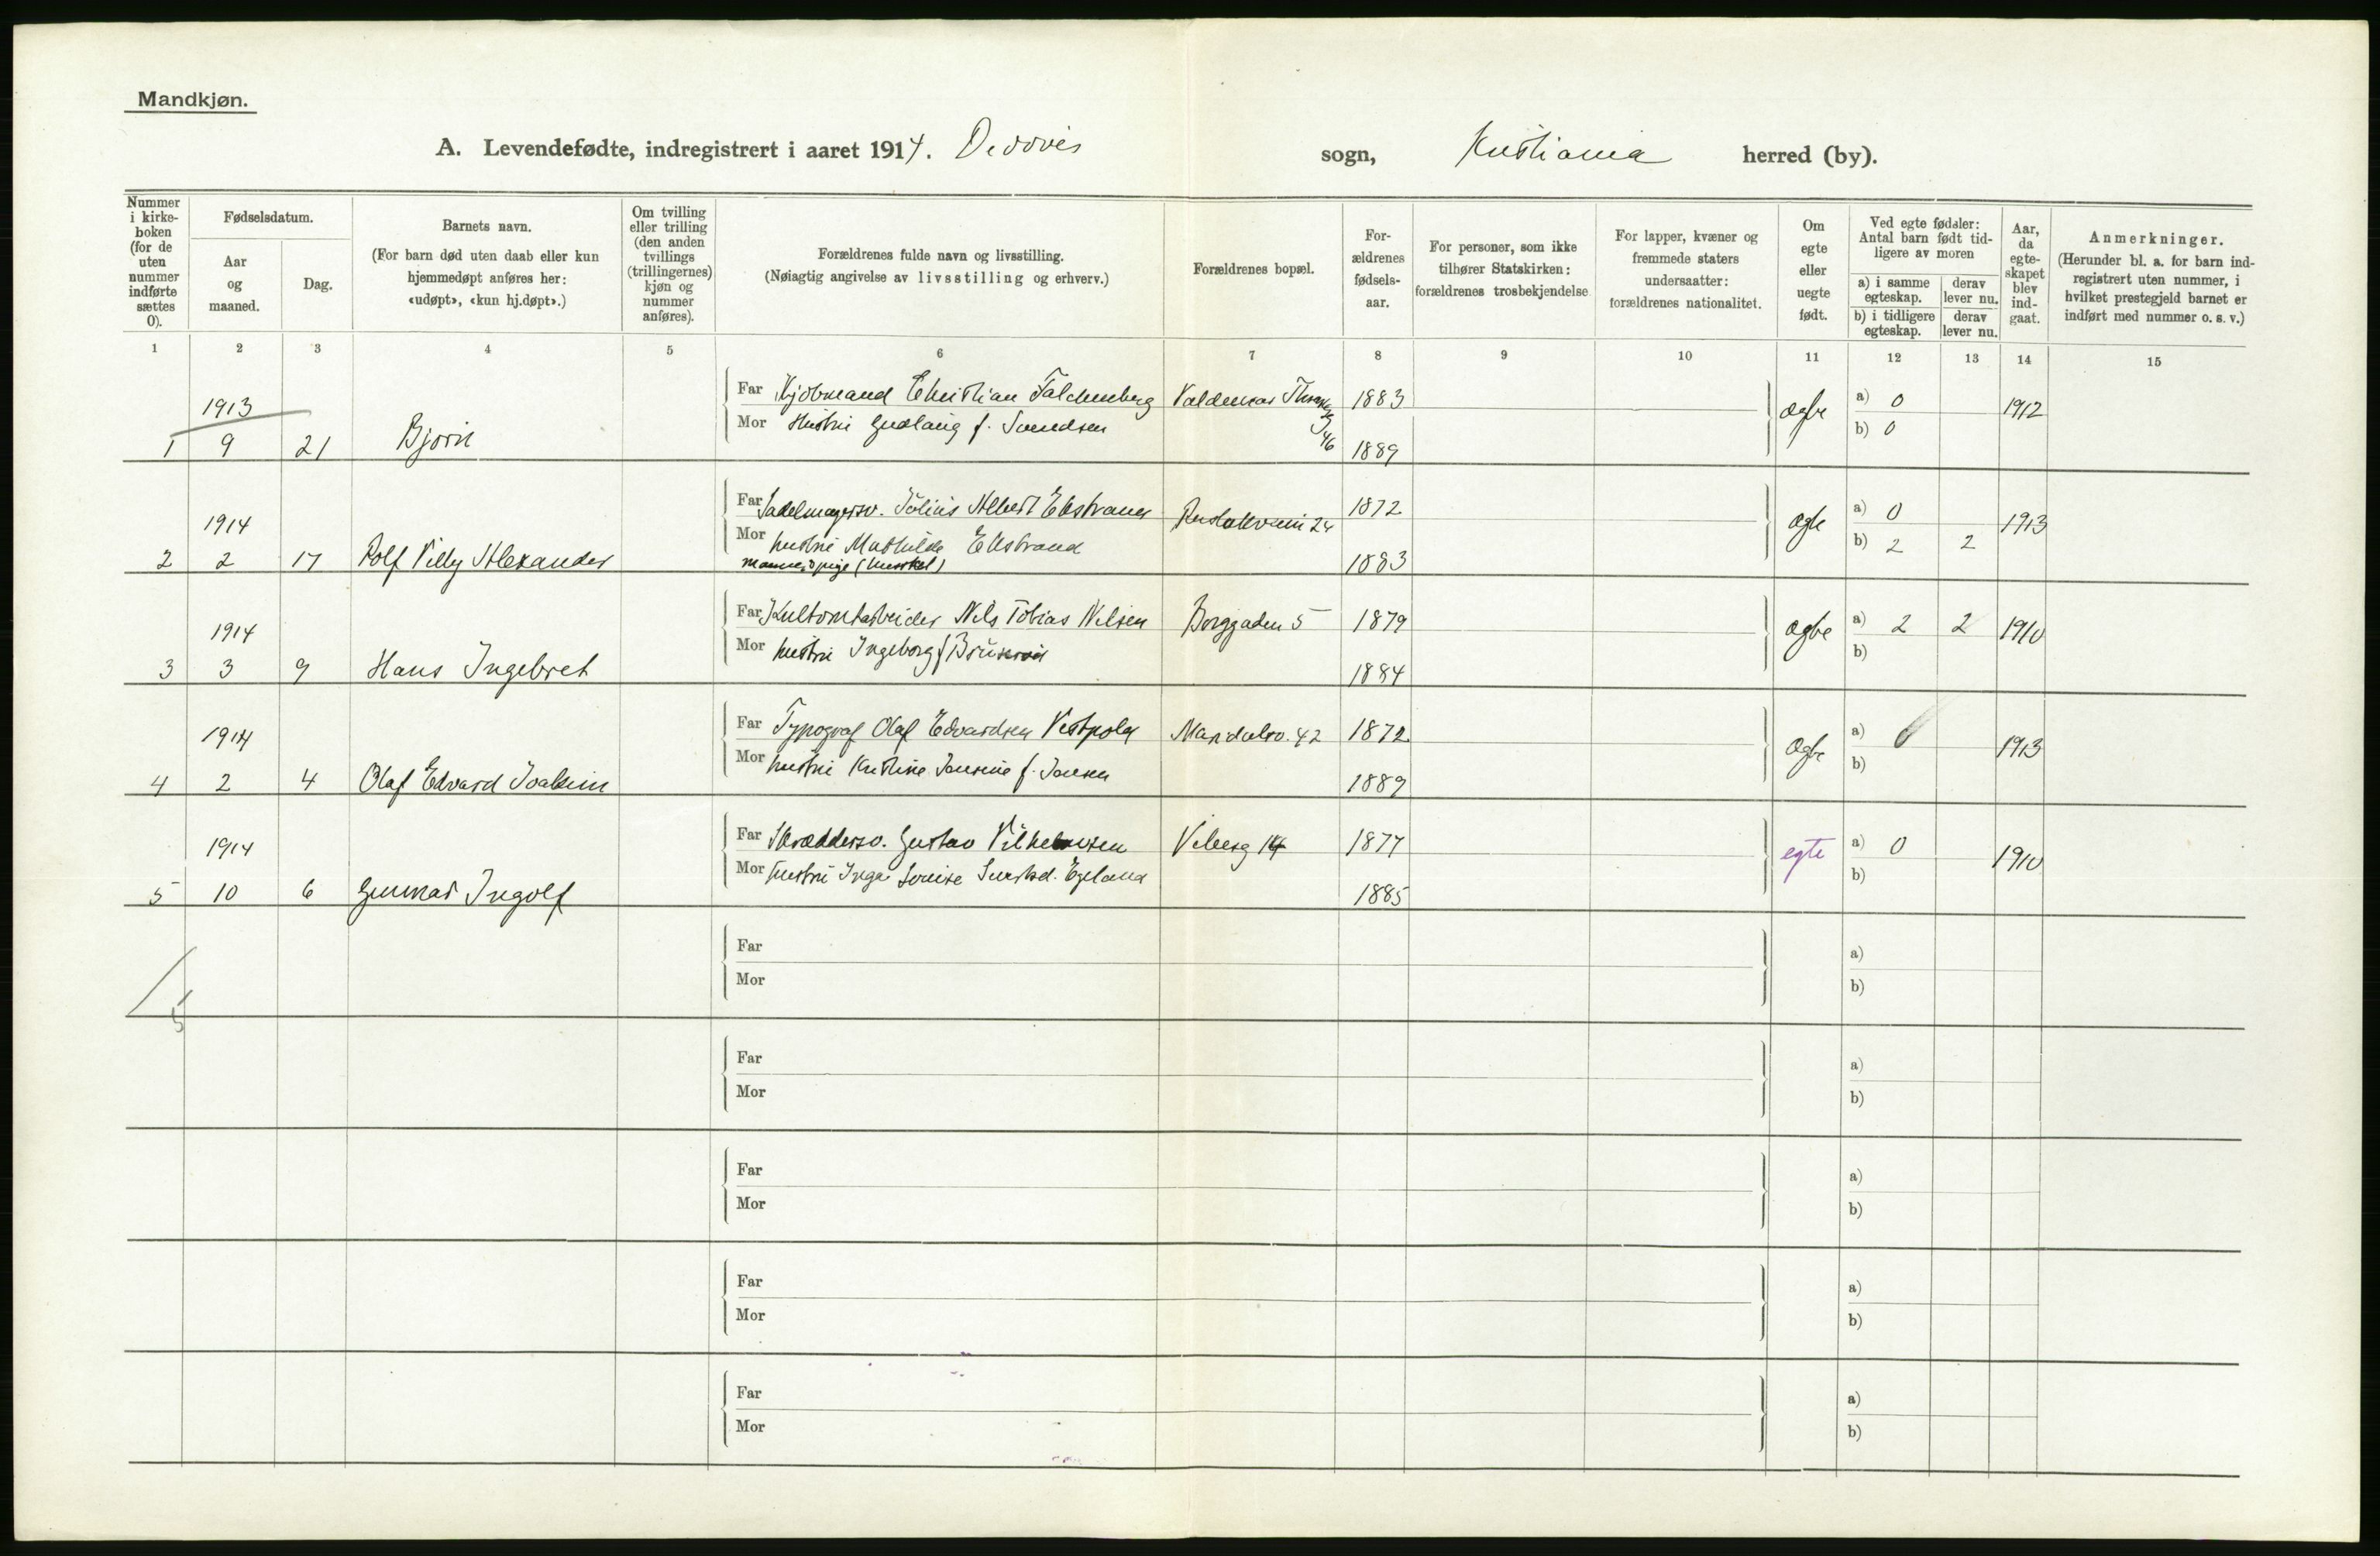 Mandkjøn.
A. Levendefødte, indregistrert i aaret 1914. sogn, Kristiania herred (by).
Nummer i kirke- boken (for de uten nummer indførte sættes 0).
Fødselsdatum.
Aar og maaned.
Dag.
Barnets navn.
(For barn død uten daab eller kun hjemmedøpt anføres her: «udøpt», «kun hj.døpt».)
Om tvilling eller trilling (den anden tvillings (trillingernes) kjøn og nummer anføres).
Forældrenes fulde navn og livsstilling.
(Nøiagtig angivelse av livsstilling og erhverv.)
Forældrenes bopæl.
For- ældrenes fødsels- aar.
For personer, som ikke tilhører Statskirken: forældrenes trosbekjendelse
For lapper, kvæner og fremmede staters undersaatter: forældrenes nationalitet.
Om egte eller uegte født.
Ved egte fødsler: Antal barn født tid- ligere av moren
a) i samme egteskap. derav lever nu.
b) i tidligere egteskap. derav lever nu.
Aar, da egte- skapet blev ind- gaat.
Anmerkninger.
(Herunder bl. a. for barn ind- registrert uten nummer, i hvilket prestegjeld barnet er indført med nummer o. s. v.)
1 2 3 4 5 6 7 8 9 10 11 12 13 14 15
1913 Far Kjøbmand Christian Falchenberg Valdemar Thranesg 46 1883 a) 0 1912
1 9 21 Bjørn Mor Hustru Gudlaug f. Svendsen 1889 ægte b) 0
1914 Far Sadelmagersv. Julius Albert Ekstrand 24 1872 a) 0 1913
2 2 17 Rolf Villy Alexander Mor hustru Mathilde Ekstrand 1883 ægte b) 2 2
1914 Far Nils Tobias Nilsen Borggaden 5 1879 a) 2 2 1910
3 3 9 Hans Ingebret Mor hustru Ingeborg f. 1884 ægte b)
1914 Far Typograf Olaf Edvardsen Maridalsv. 42 1872 a) 0 1913
4 2 4 Olaf Edvard Joakim Mor hustru Kristine Jensine f. Jansen 1889 ægte b)
1914 Far Skræddersv. Gustav Vilhelmsen Vibesg 14 1877 egte a) 0 1910
5 10 6 Gunnar Ingolf Mor hustru Inga Lovise Egeland 1885 b)
Far a)
Mor b)
5
Far a)
Mor b)
Far a)
Mor b)
Far a)
Mor b)
Far a)
Mor b)